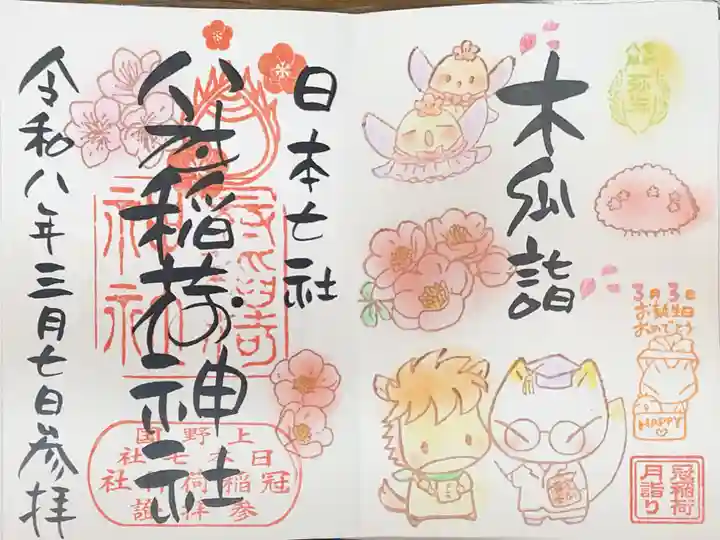 木瓜詣
3月3日
お誕生日
おめでとう
HAPPY
冠稲荷
月詣り
日本七社
冠稲荷神社
令和八年三月七日参拝
上野国
日本七社
冠稲荷神社
参拝證